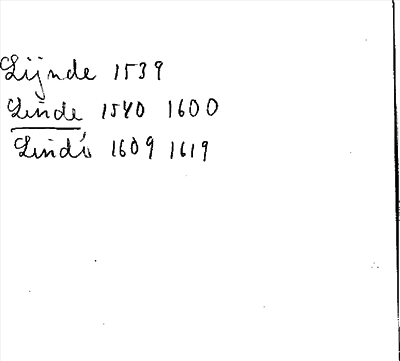 Lijnde 1539
Leinde 1540 1600
Lindó 1609 1619